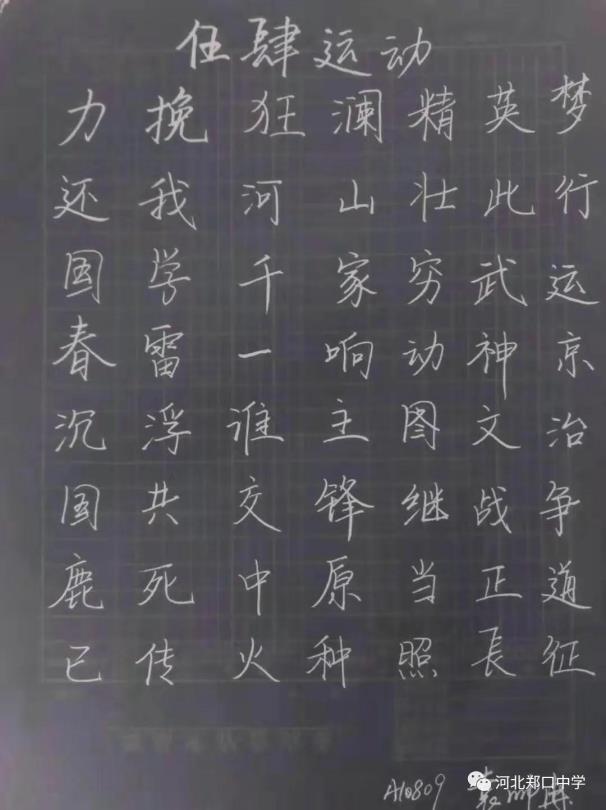 伍肆运动
力挽狂澜精英梦
还我河山壮此行
国学千家穷武运
春雷一响动神京
沉浮谁主图文治
国共交锋继战争
鹿死中原当正道
已传火种照長征
A10809
河北郑口中学